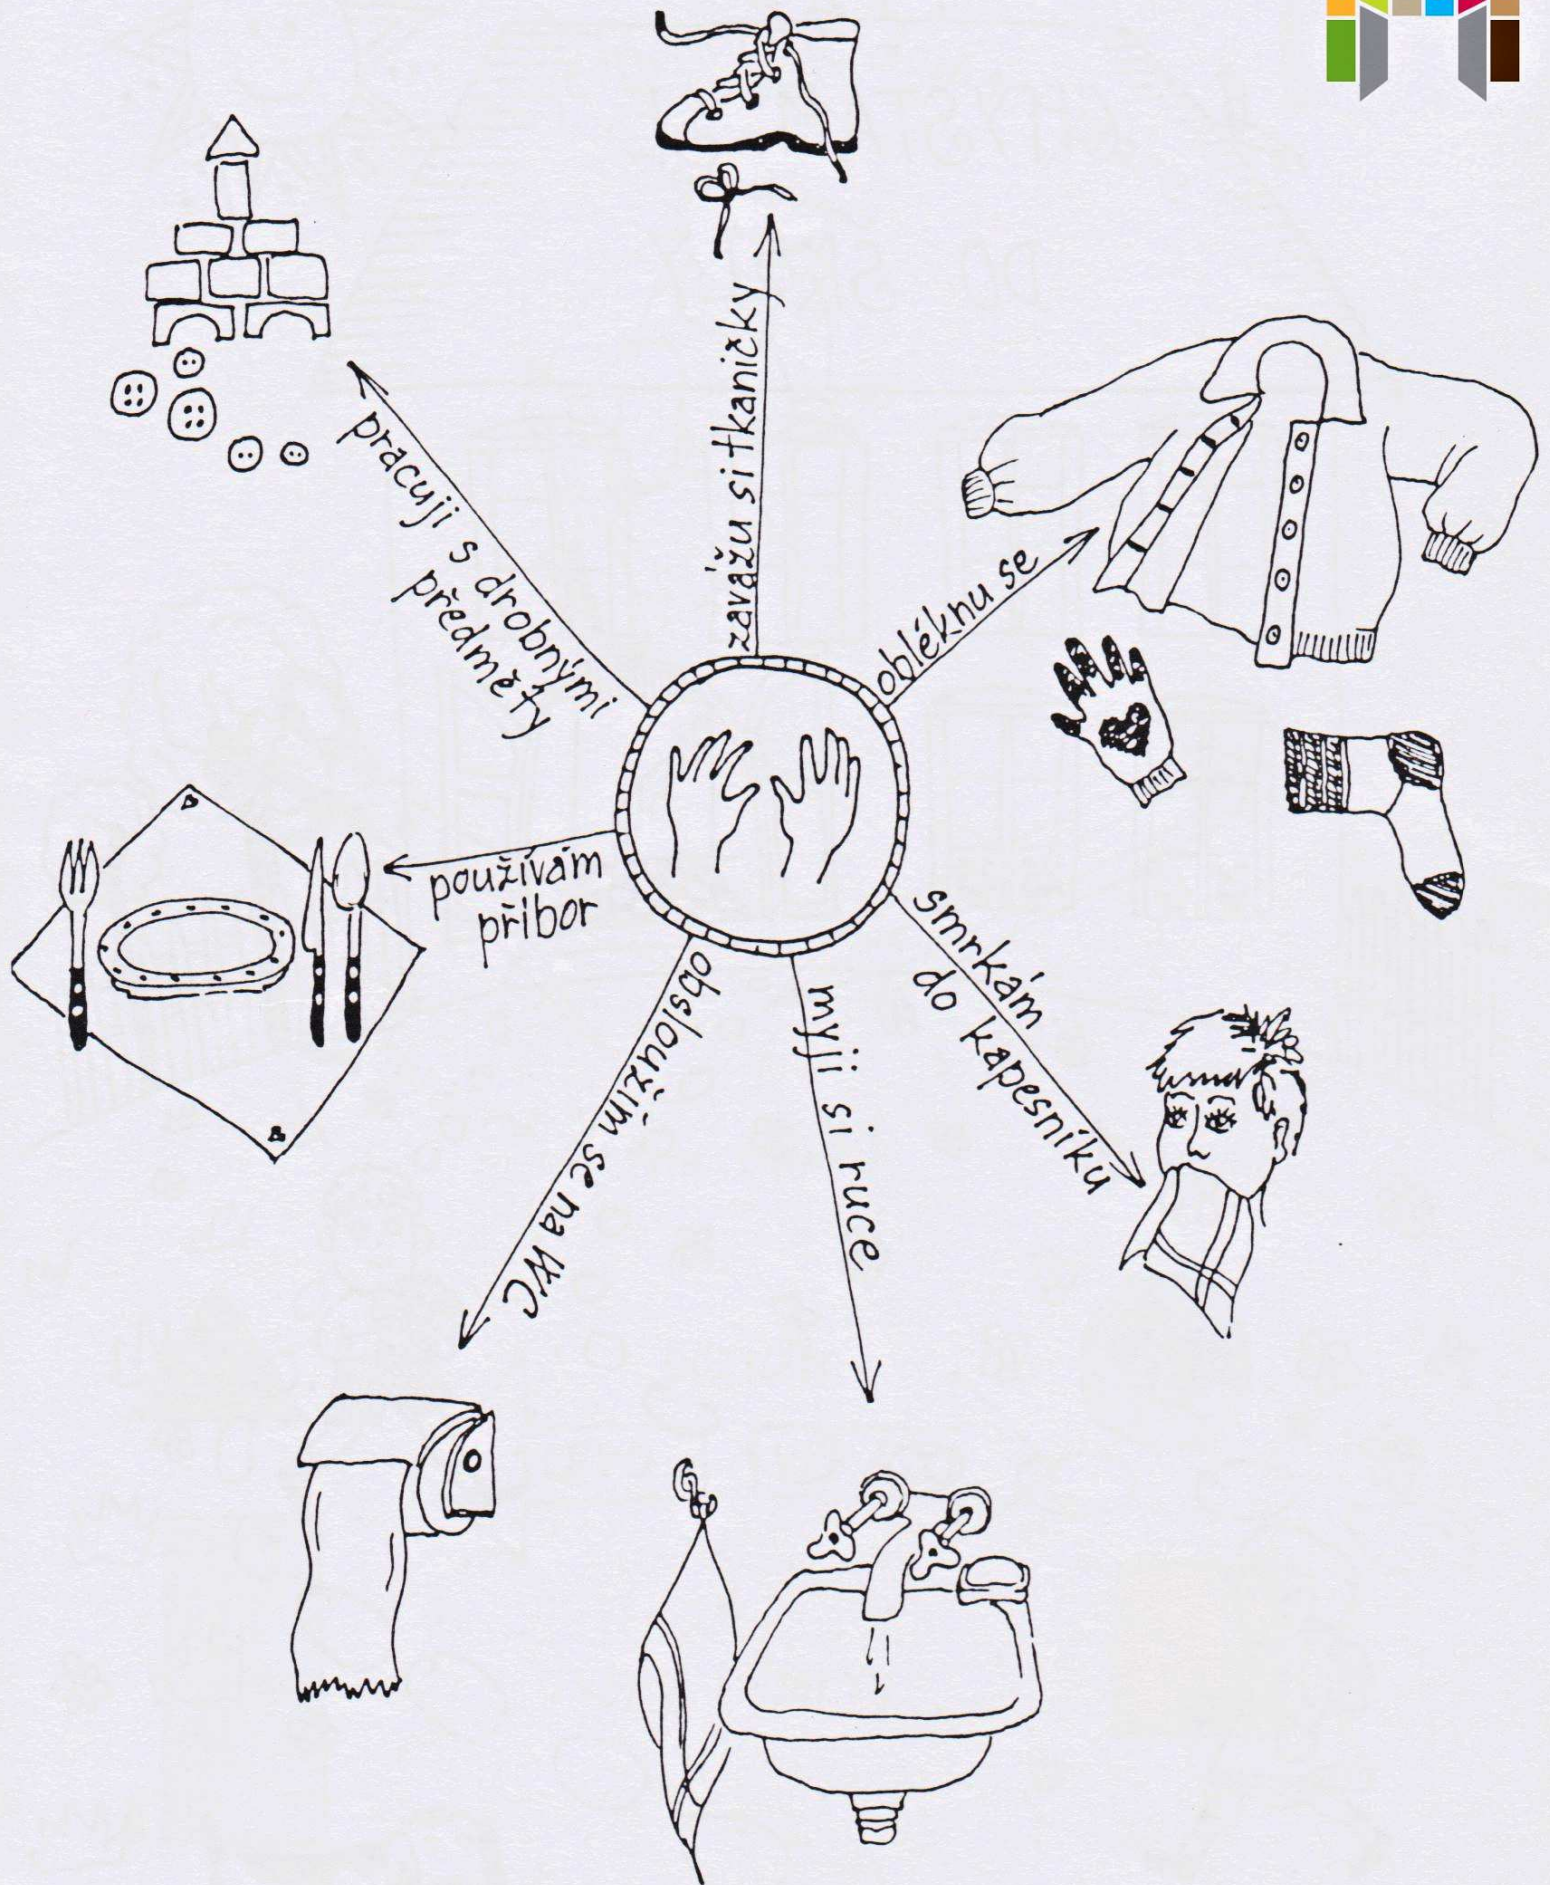 zavážu si tkaničky
obléknu se
smrkám
do kapesníku
myji si ruce
obsloužím se na WC
používám
příbor
pracuji s drobnými
předměty